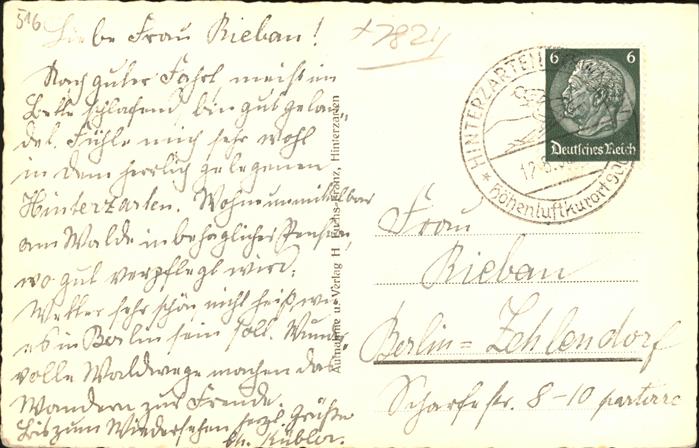 516
Liebe Frau Rieban!
Nach guter Fahrt meist im
Bette schlafend, bin gut gelan-
det. Fühle mich sehr wohl
in dem herrlich gelegenen
Hinterzarten. Wohne unmittelbar
am Walde in behaglicher Pension,
wo gut verpflegt wird.
Wetter sehr schön nicht heiß, wie
es in Berlin sein soll. Wunder-
volle Waldwege machen das
Wandern zur Freude.
Bis zum Wiedersehen herzl. Grüße
Kübler.
Aufnahme u. Verlag H. Fuchs-Franz, Hinterzarten
+7824
HINTERZARTEN
Höhenluftkurort 900
6 6
Deutsches Reich
Frau
Rieban
Berlin=Zehlendorf
Scharfestr. 8-10 parterre